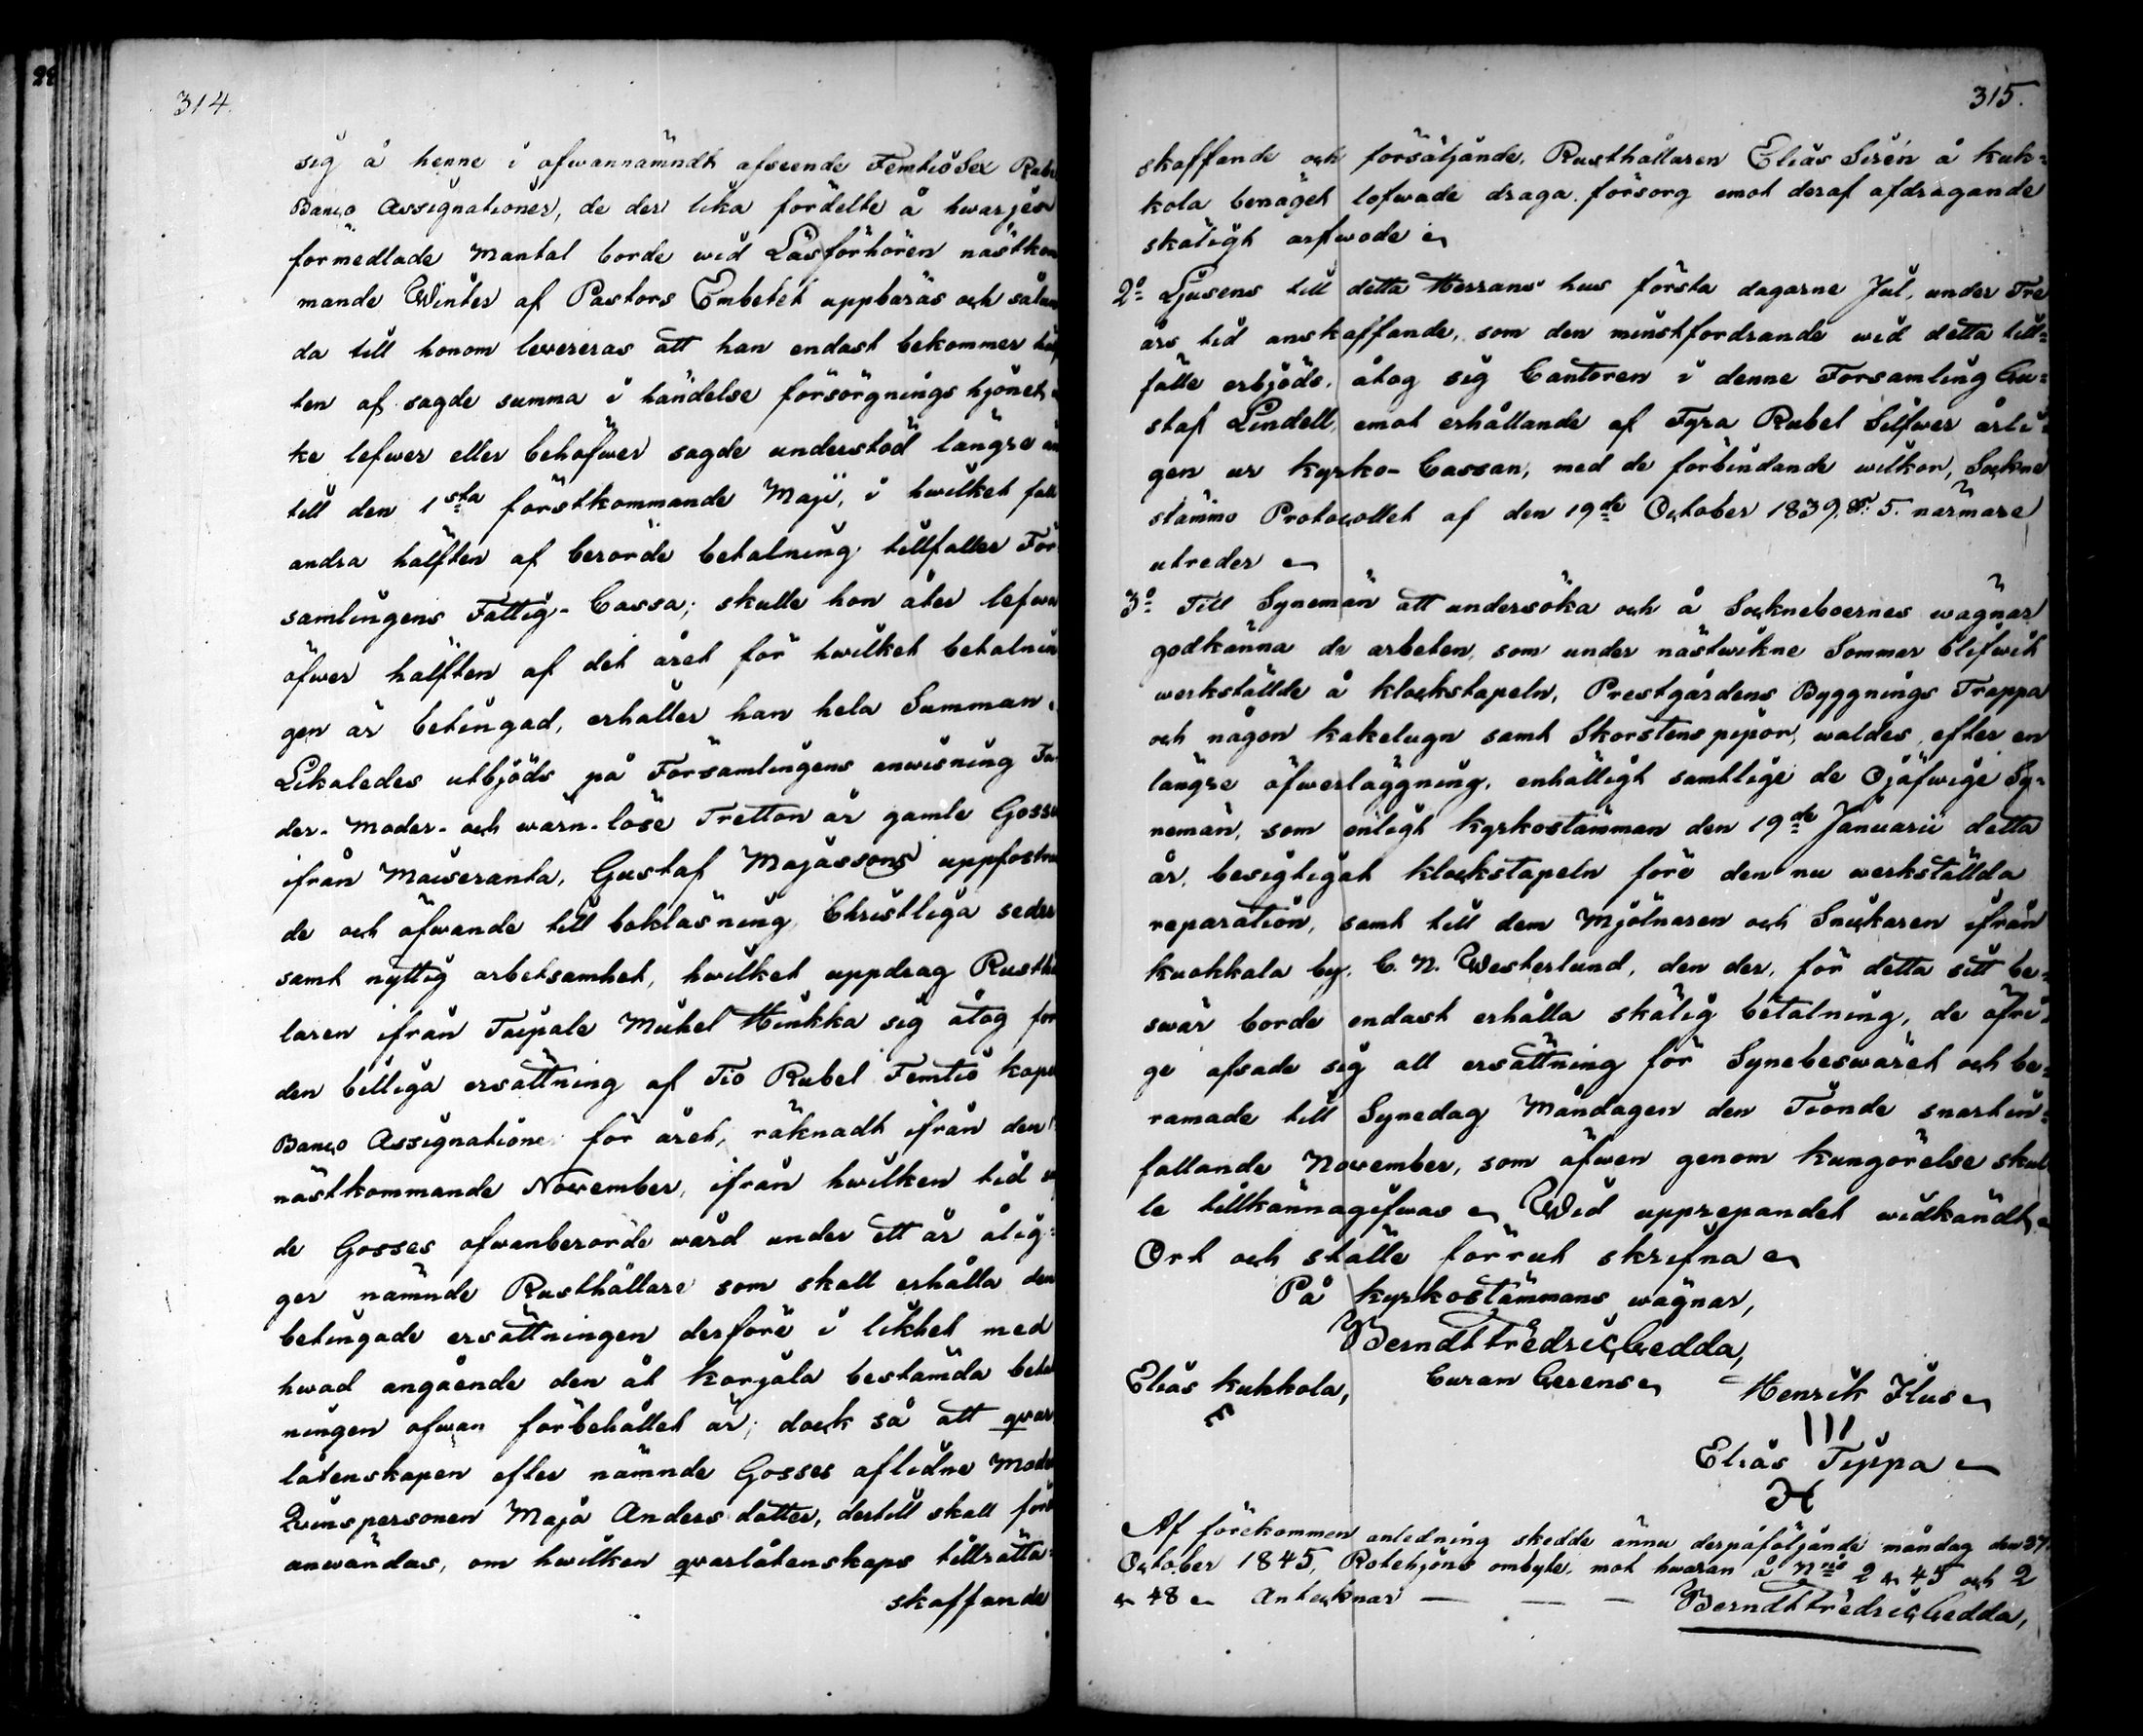 314.
sig å henne i ofwannämndt afseende Femtio Sex Rub
Banco Assignationer, de der lika fördelte å hwarjes
förmedlade Mantal borde wid Läsförhören nästkom
mande Winter af Pastors Embetet uppbäras och sålun
da till honom levereras att han endast bekommer hälf
ten af sagde summa i händelse försörgnings hjonet,
ke lefwer eller behöfwer sagde understöd längre än
till den 1sta förstkommande Maji, i hwilket fall
andra hälften af berörde betalning tillfaller För
samlingens Fattig-Cassa; skulle hon åter lefwa
öfwer hälften af det året för hwilket betalnin
gen är betingad, erhåller han hela Summan.
Likaledes utbjöds på Församlingens anwisning Fa
der- Moder- och wärn-löse Tretton år gamle Gosse
ifrån Maiseranta, Gustaf Majassons uppfostra
de och öfwande till bokläsning, Christliga seder
samt nyttig arbetsamhet, hwilket uppdrag Rusthå
laren ifrån Taipale Mickel Hinkka sig åtog för
den billiga ersättning af Tio Rubel Femtio kope
Banco Assignatione för året, räknadt ifrån den 1
nästkommande November, ifrån hwilken tid
de Gosses ofwanberörde wård under ett år ålig=
ger nämnde Rusthållare som skall erhålla den
betingade ersättningen derföre i likhet med
hwad angående den åt Karjala bestämda beta
ningen ofwan förbehållet är; dock så att qvar
låtenskapen efter nämnde Gosses aflidne Mode
Qvinspersonen Maja Anders dotter, dertill skall för
anwändas, om hwilken qvarlåtenskaps tillrätta=
skaffande
315.
skaffande och försäljande, Rusthållaren Elias Sirén å Kuk=
kola benäget lofwade draga försorg emot deraf afdragande
skäligt arfwode
2o Ljusens till detta Herrans hus första dagarne Jul, under Tre
års tid anskaffande, som den minstfordrande wid detta till=
fälle erbjöds, åtog sig Cantoren i denne Församling Gu=
staf Lindell, emot erhållande af Fyra Rubel Silfwer årli=
gen ur Kyrko-Cassan, med de förbindande wilkor, Sockne
stämmo Protocollet af den 19de October 1839 §. 5. närmare
utreder
3o Till Synemän att undersöka och å Sockneboernes wägnar
godkänna de arbeten, som under nästwikne Sommar blifwit
werkställde å klockstapeln, Prestgårdens Byggnings Trappa
och någon kakelugn samt Skorstens pipor, waldes, efter en
längre öfwerläggning, enhälligt samtlige de Ojäfwige Sy=
nemän, som enligt kyrkostämman den 19de Januarii detta
år, besigtigat klockstapeln före den nu werkställda
reparation, samt till dem Mjölnaren och Snickaren ifrån
Kuokkala by, C. N. Westerlund, den der, för detta sitt be=
swär borde endast erhålla skälig betalning, de öfri=
ge afsade sig all ersättning för Synebeswäret och be=
ramade till Synedag Måndagen den Tionde snartin=
fallande November, som äfwen genom kungörelse skul
le tillkännagifwas Wid upprepandet widkändt,
Ort och ställe förrut skrifna
På kyrkostämmans wägnar,
Berndt Fredric Gedda,
Elias Kukkola, Curam Gerens Henrik Ilus
Elias Tippa
Af förekommen anledning skedde ännu derpåföljande måndag den 27
October 1845, Rotehjons ombyte, mot hwaran å Nris 2 & 45 och 2
& 48 Antecknar — — — Berndt Fredric Gedda,